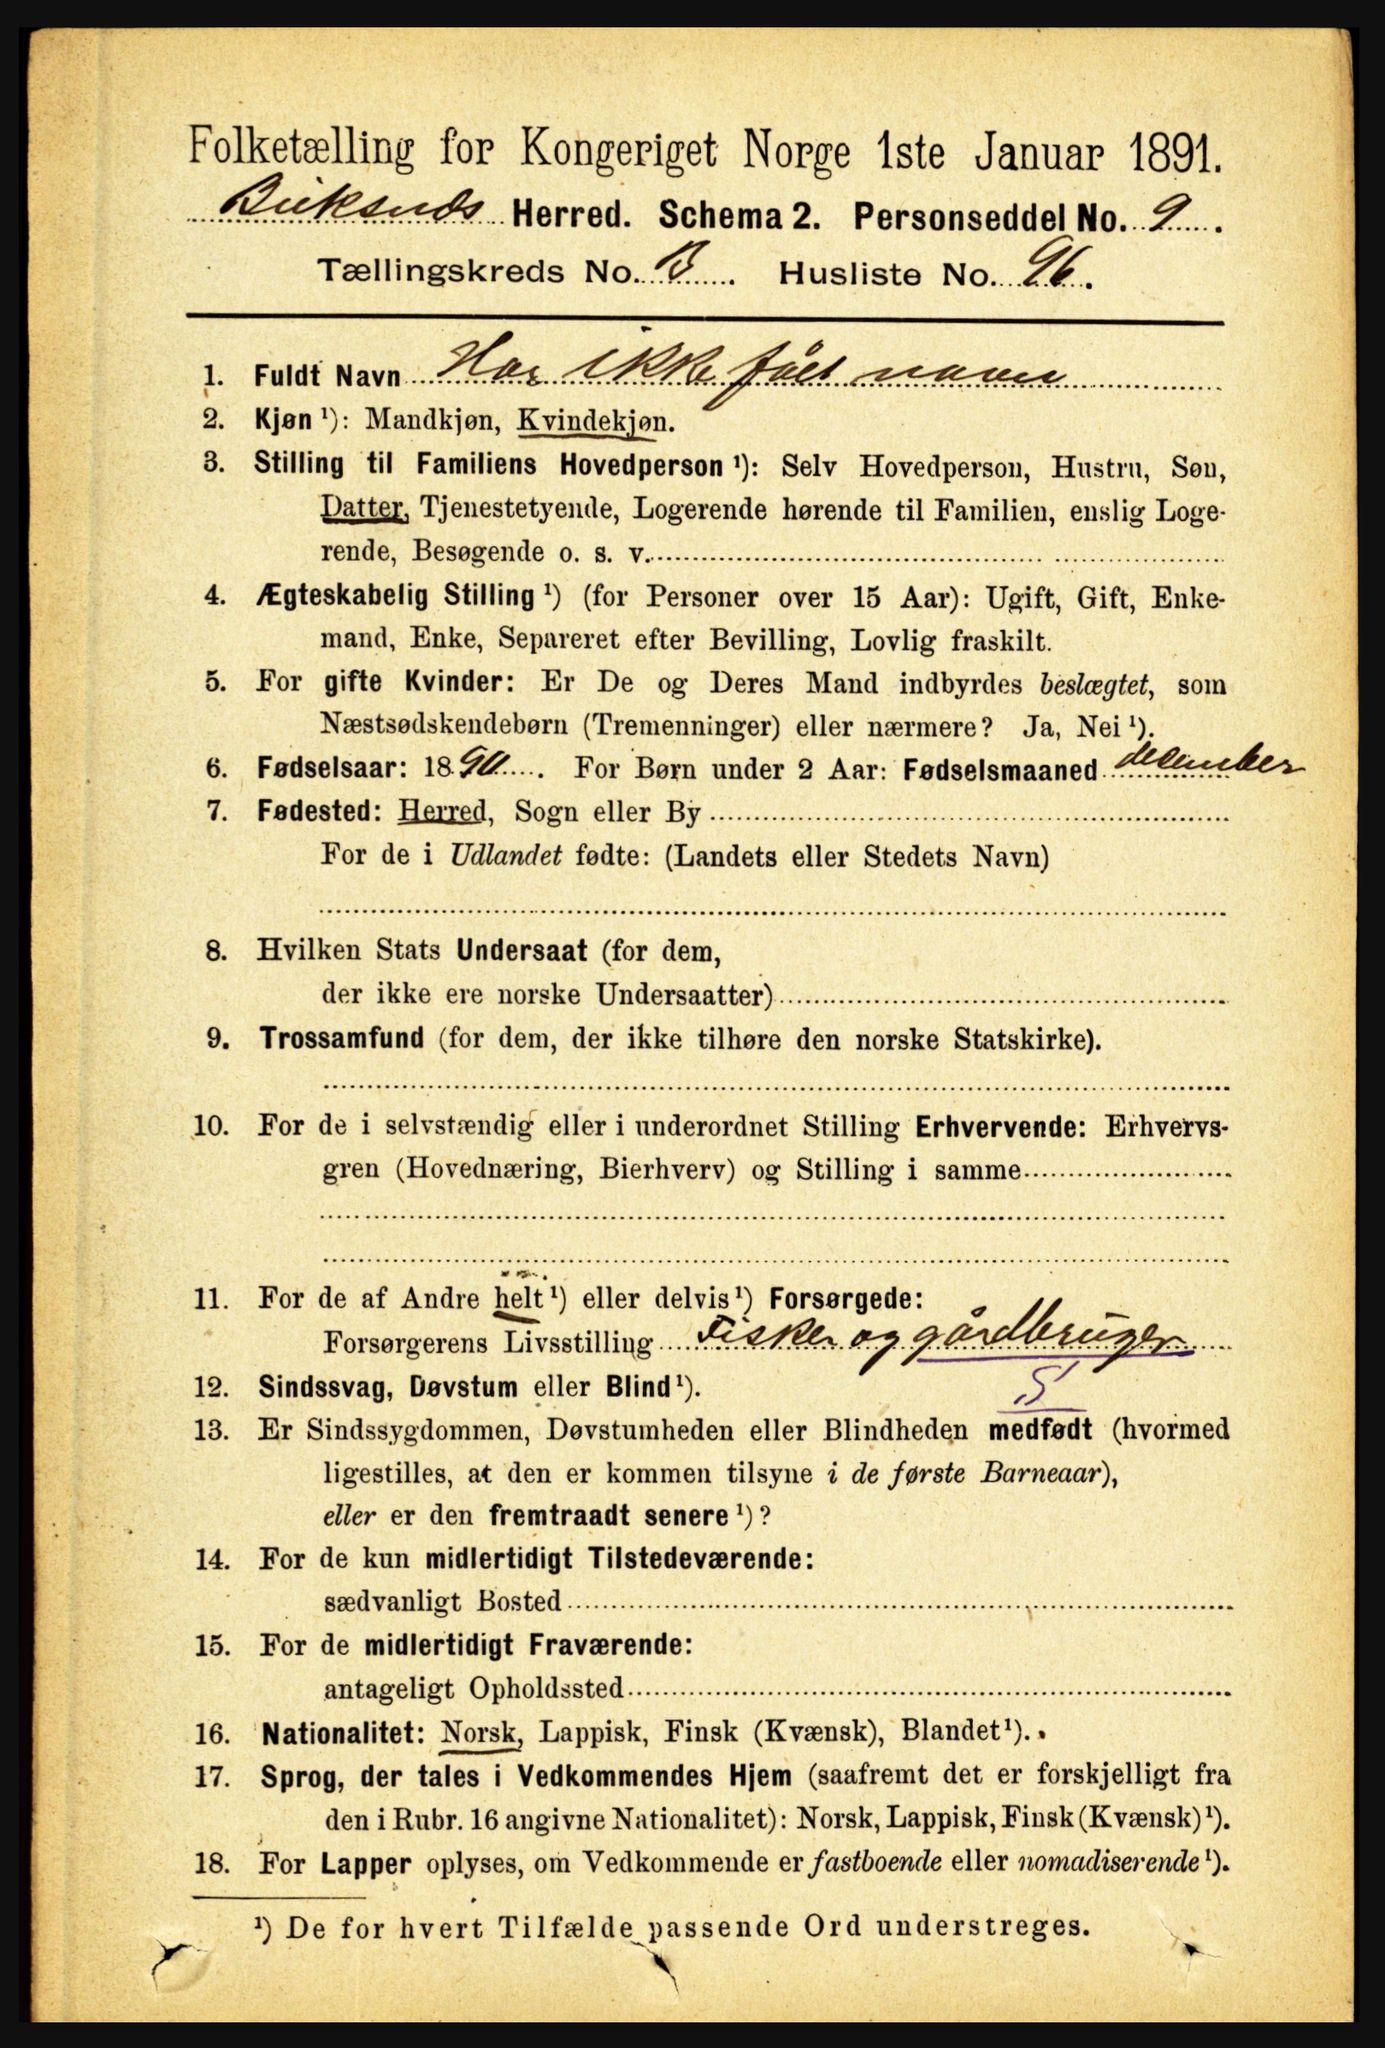 Folketælling for Kongeriget Norge 1ste Januar 1891.
Buksnæs Herred. Schema 2. Personseddel No. 9.
Tællingskreds No. B. Husliste No. 96.
1. Fuldt Navn Har ikke fået navn
2. Kjøn ¹): Mandkjøn, Kvindekjøn.
3. Stilling til Familiens Hovedperson ¹): Selv Hovedperson, Hustru, Søn,
Datter, Tjenestetyende, Logerende hørende til Familien, enslig Loge-
rende, Besøgende o. s. v.
4. Ægteskabelig Stilling ¹) (for Personer over 15 Aar): Ugift, Gift, Enke-
mand, Enke, Separeret efter Bevilling, Lovlig fraskilt.
5. For gifte Kvinder: Er De og Deres Mand indbyrdes beslægtet, som
Næstsødskendebørn (Tremenninger) eller nærmere? Ja, Nei ¹).
6. Fødselsaar: 1890. For Børn under 2 Aar: Fødselsmaaned desember
7. Fødested: Herred, Sogn eller By
For de i Udlandet fødte: (Landets eller Stedets Navn)
8. Hvilken Stats Undersaat (for dem,
der ikke ere norske Undersaatter)
9. Trossamfund (for dem, der ikke tilhøre den norske Statskirke).
10. For de i selvstændig eller i underordnet Stilling Erhvervende: Erhvervs-
gren (Hovednæring, Bierhverv) og Stilling i samme
11. For de af Andre helt ¹) eller delvis ¹) Forsørgede:
Forsørgerens Livsstilling Fisker og gårdbruger
12. Sindssvag, Døvstum eller Blind ¹). S
13. Er Sindssygdommen, Døvstumheden eller Blindheden medfødt (hvormed
ligestilles, at den er kommen tilsyne i de første Barneaar),
eller er den fremtraadt senere ¹)?
14. For de kun midlertidigt Tilstedeværende:
sædvanligt Bosted
15. For de midlertidigt Fraværende:
antageligt Opholdssted
16. Nationalitet: Norsk, Lappisk, Finsk (Kvænsk), Blandet ¹).
17. Sprog, der tales i Vedkommendes Hjem (saafremt det er forskjelligt fra
den i Rubr. 16 angivne Nationalitet): Norsk, Lappisk, Finsk (Kvænsk) ¹).
18. For Lapper oplyses, om Vedkommende er fastboende eller nomadiserende ¹).
¹) De for hvert Tilfælde passende Ord understreges.